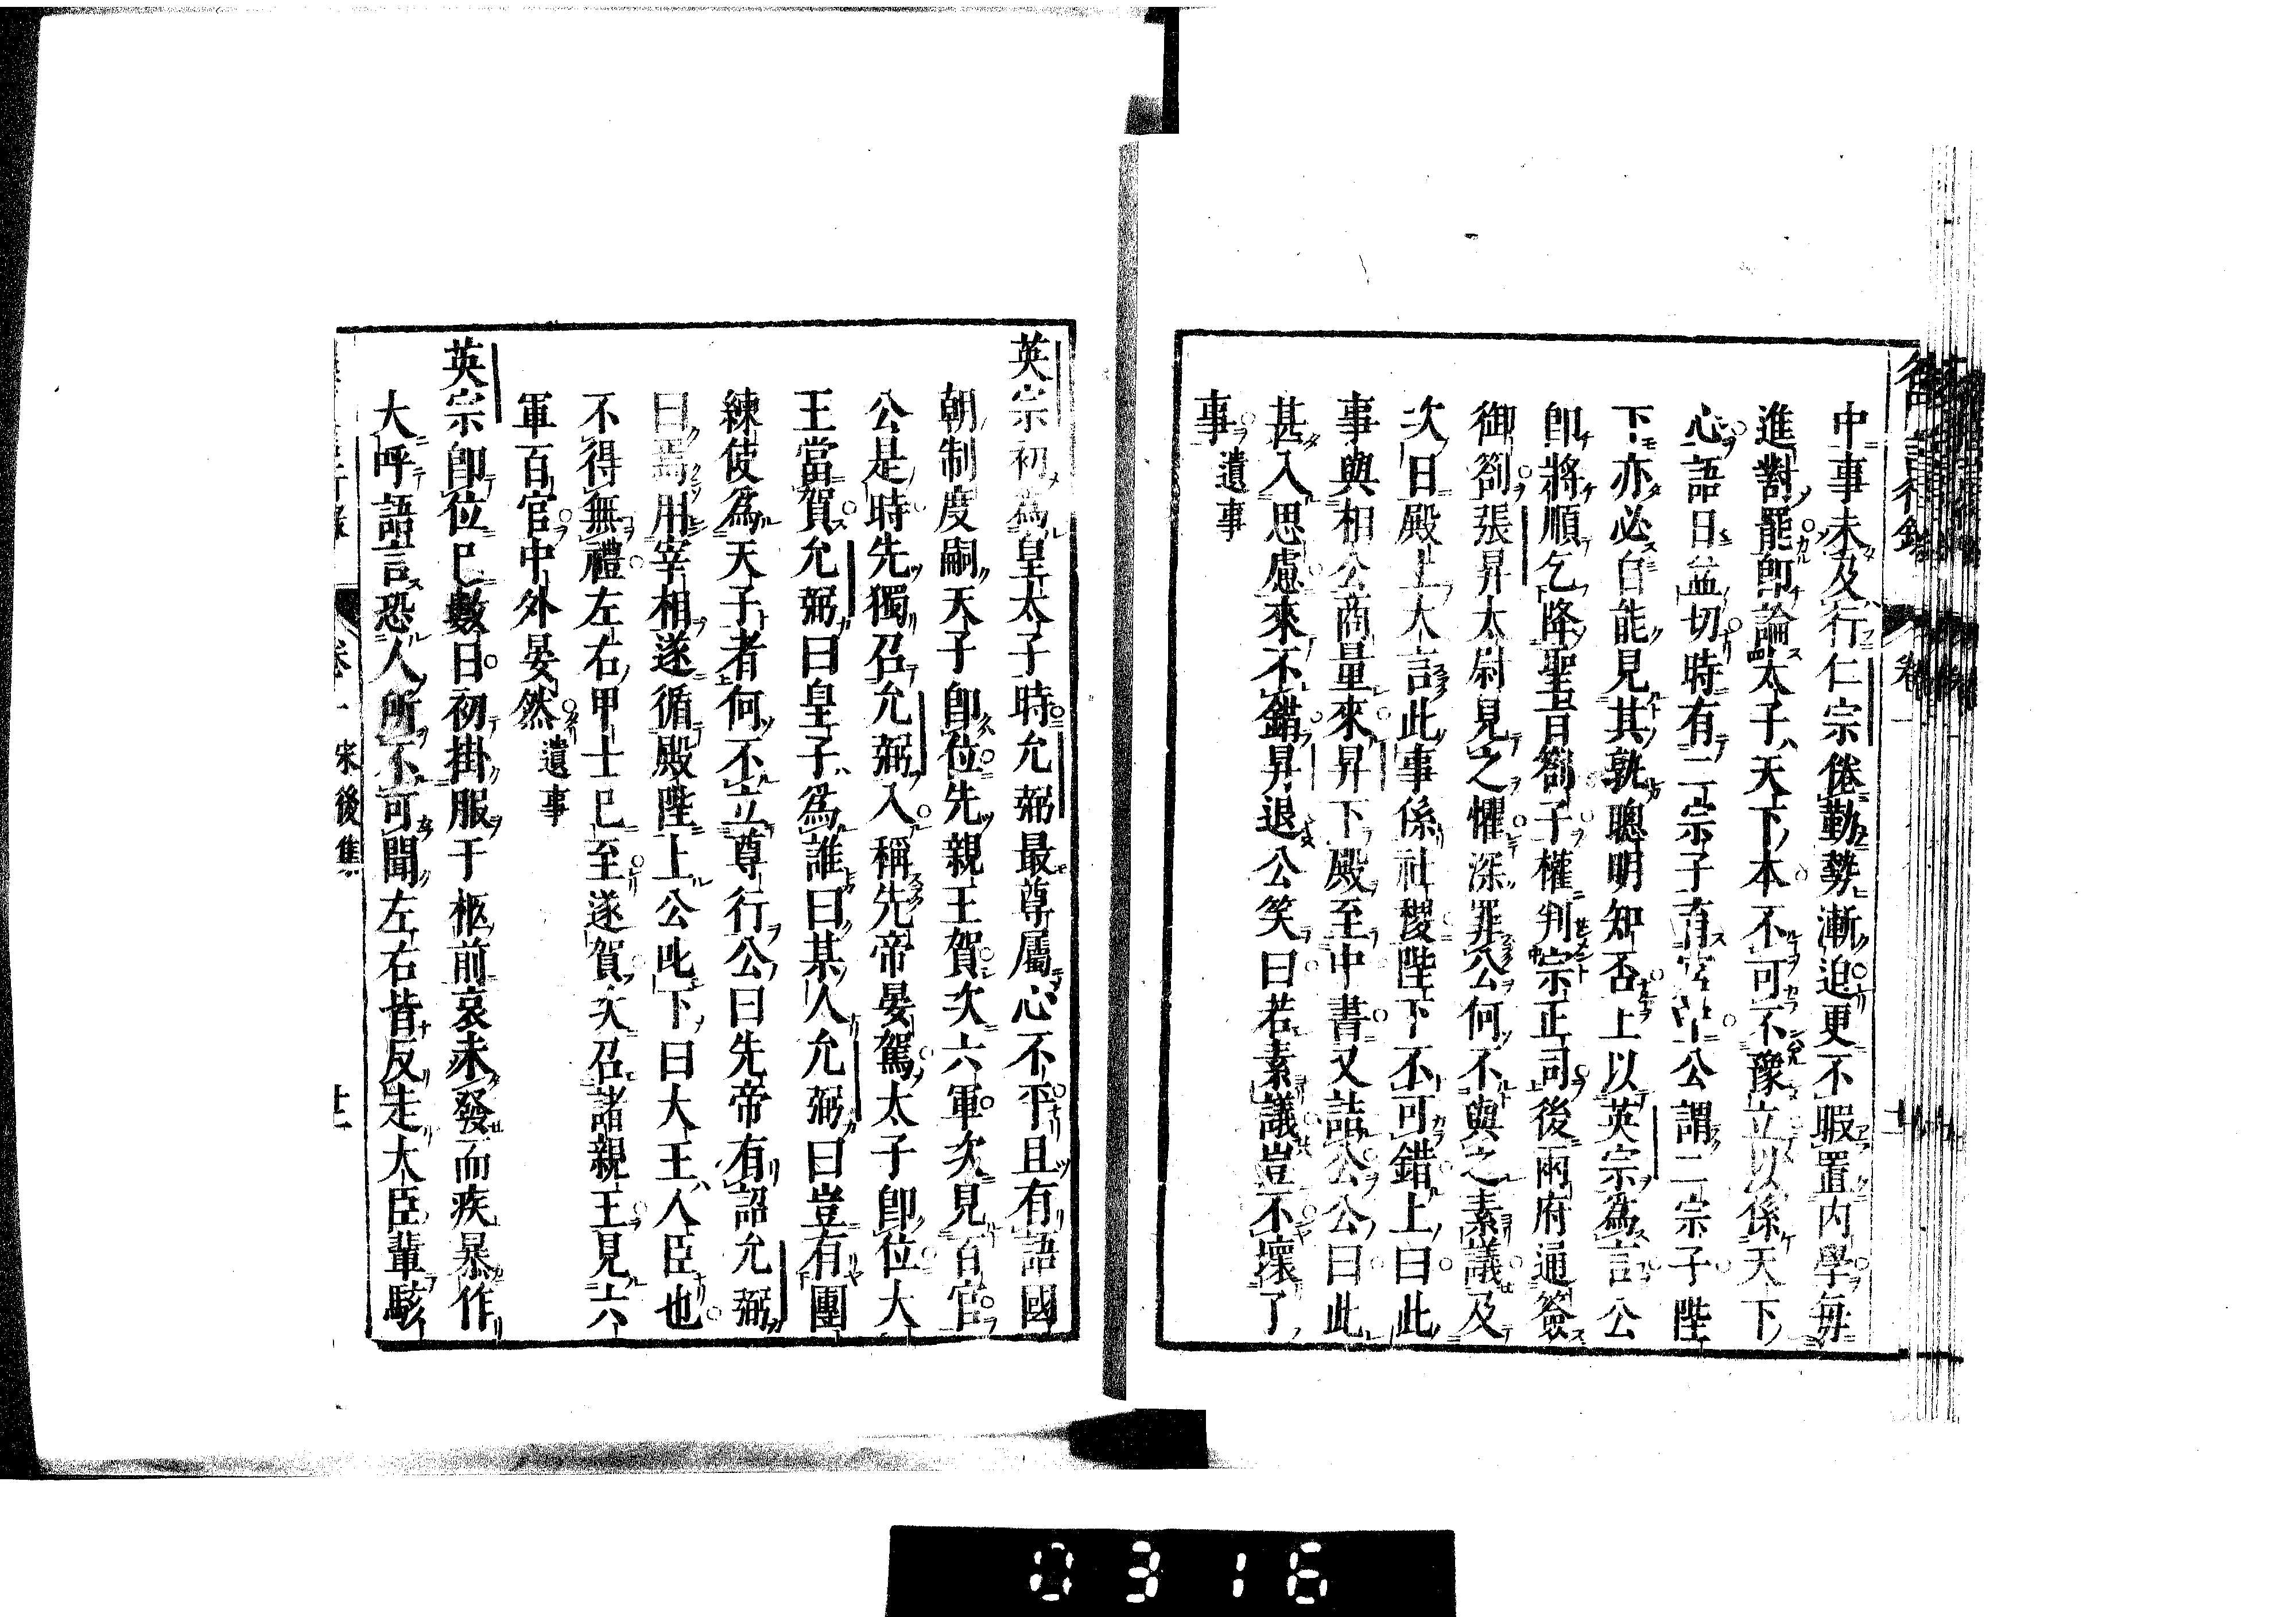 中事未及行仁宗倦勤勢漸迫更不暇置内學毎
進對罷即論太子天下本不可不豫立以係天下
心語日益切時有二宗子育宮中公謂二宗子陛
下亦必自能見其孰聰明知否上以英宗爲言公
即將順乞降聖旨劄子權判宗正司後兩府通簽
御劄張昇太尉見之懼深罪公何不與之素議及
次日殿上大言此事係社稷陛下不可錯上曰此
事與相公商量來昇下殿至中書又詰公公曰此
甚入思慮來不錯昇退公笑曰若素議豈不壞了
事遺事
英宗初爲皇太子時允弼最尊屬心不平且有語國
朝制度嗣天子即位先親王賀次六軍次見百官
公是時先獨召允弼入稱先帝晏駕太子即位大
王當賀允弼曰皇子爲誰曰某人允弼曰豈有團
練使爲天子者何不立尊行公曰先帝有詔允弼
曰焉用宰相遂循殿陛上公叱下曰大王人臣也
不得無禮左右甲士已至遂賀次召諸親王見六
軍百官中外晏然遺事
英宗即位已數日初掛服于柩前哀未發而疾暴作
大呼語言恐人所不可聞左右皆反走大臣輩駭
卷一 宋後集
0316